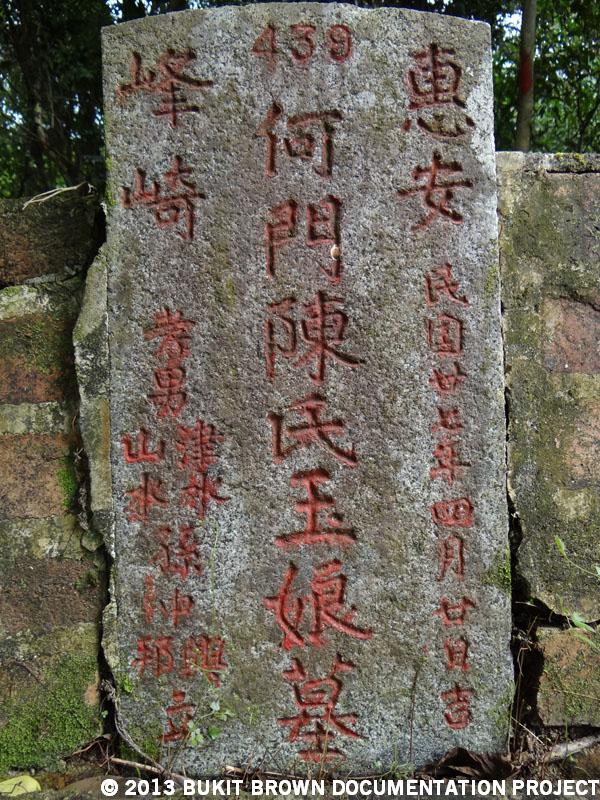 439
惠安
民国廿七年四月廿日吉
何門陳氏玉娘墓
峰崎
孝男
津水
山水
孫
興
邦
立
© 2013 BUKIT BROWN DOCUMENTATION PROJECT